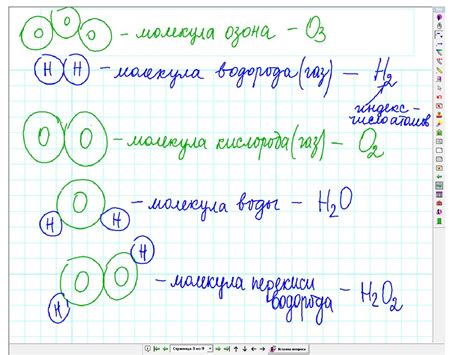 O O O – молекула озона – O₃
H H – молекула водорода (газ) – H₂
индекс –
число атомов
O O – молекула кислорода (газ) – O₂
O H H – молекула воды – H₂O
O O H H – молекула перекиси водорода – H₂O₂
Страница 9 из 9